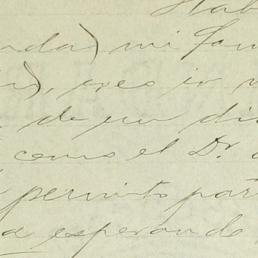 Hab
nda) mi fam
de un di
como el Dr.
permito par
a esperando